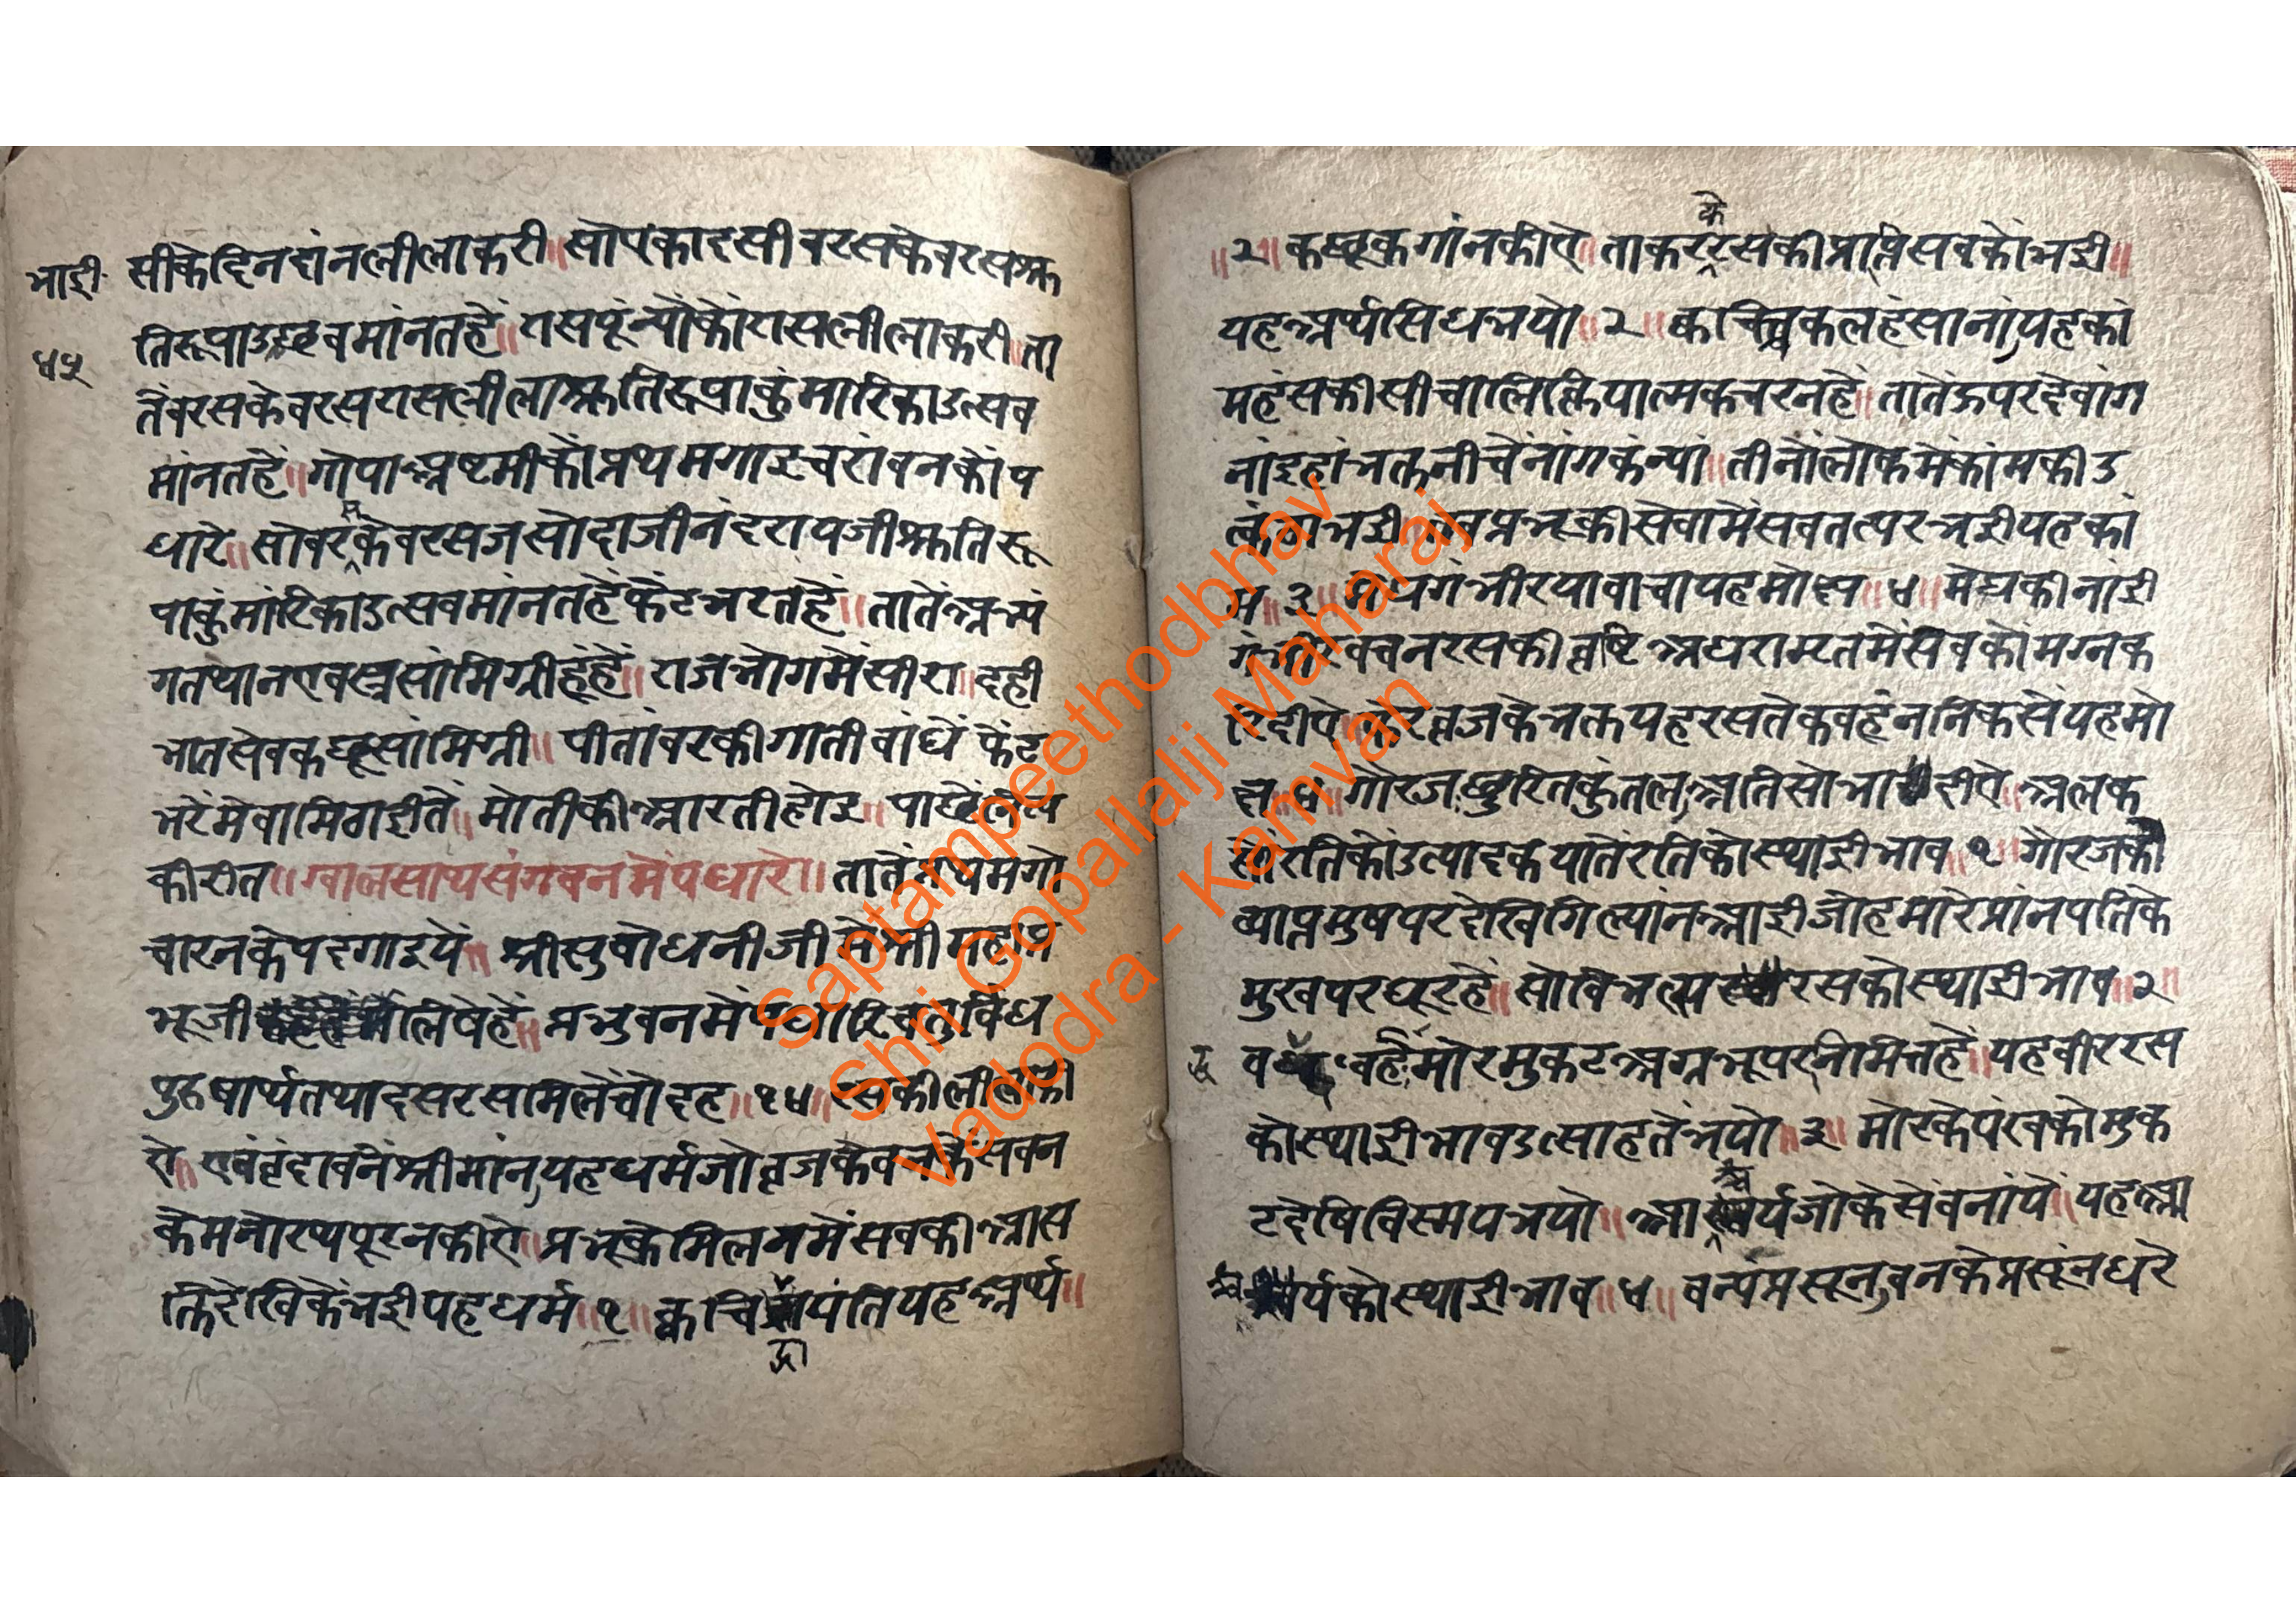 भाद्री
४५
सीकेदिनदांनलीलाकरी॥सोएकादसीबरसकेबरसश्रु
तिरूपाउछवमांनतहें॥रासपूंन्योकोंरासलीलाकरी॥ता
तेंबरसकेबरसरासलीलाश्रुतिरूपाकुंमारिकाउत्सव
मांनतहें॥गोपाअष्टमीकोंप्रथमगाइचरांवनकोंप
धारे॥सोबरसकेबरसजसोदाजीनंदरायजीश्रुतिरू
पाकुंमांरिकाउत्सवमांनतहेंफेंटभरतहें॥तातेंअभ्यं
गतथानएवस्त्रसांमिग्रीहूंहें॥राजभोगमेंसीरा॥दही
भातसेवकछूसांमिग्री॥पीतांबरकीगातीबांधें फेंट
भरेंमेवामिठाईतें॥मोतीकीआरतीहोइ॥पाछेंनित्य
कीरीत॥ग्वालसाथसंगबनमेंपधारे॥तातेंप्रथमगो
चारनकेपदगाइयें॥श्रीसुबोधनीजीमेंश्रीमहाप्र
भूजी लिषेहें॥प्रभुवनमेंपधारिचतुर्विध
पुरुषार्थतथादसरसमिलेंचौदह॥१४॥रसकीलीलाकी
ऐ॥एवंवृंदावनंश्रीमांन्,यहधर्मजोव्रजकेवनकेंसबन
केमनोरथपूरनकीऐ॥प्रभूकेमिलनमेंसबकीआस
क्तिदेखिकेंभईयहधर्म॥१॥क्वचिद्गायंतियहअर्थ॥
॥२॥कछूकगांनकीऐ॥ताकरकेरसकीप्राप्तिसबकोंभई॥
यहअर्थसिधभयो॥२॥क्वचिच्चकलहंसानां,यहकां
महंसकीसीचालिक्रियात्मकचरनहें॥तातेंऊपरदेवांग
नांइहांभक्तनीचेंनांगकंन्यां॥तीनोंलोकमेंकांमकीउ
त्कंठाभई॥तबप्रभूकीसेवामेंसबतत्परभईयहकां
म॥३॥मेघगंभीरयावाचायहमोक्ष॥४॥मेघकीनांई
गंभीरवचनरसकीवृष्टिअधरामृतमेंसबकोंमग्नक
रिदीये॥फेरिव्रजकेभक्तयहरसतेकबहूंननिकसेंयहमो
क्ष॥४॥गोरजछुरितकुंतल,अतिसोभादीऐ॥अलक
सोंरतिकोंउत्पादकयातेंरतिकोस्थाईभाव॥१॥गोरजकी
व्याप्तमुषपरदेखिगिल्यांनआईजोहमारेप्रांनपतिके
मुखपरधूरहें॥सोबिभत्स रसकोस्थाईभाव॥२॥
बद्धबर्ह,मोरमुकटअग्रभूपरनमितहें॥यहबीररस
कोस्थाईभावउत्साहतेंभयो॥३॥मोरकेपंखकोमुक
टदेषिविस्मयभयो॥आश्चर्यजोकेसेंबनांयें॥यहआ
श्चर्यकोस्थाईभाव॥४॥वन्यप्रसून,बनकेप्रसूंनधरे